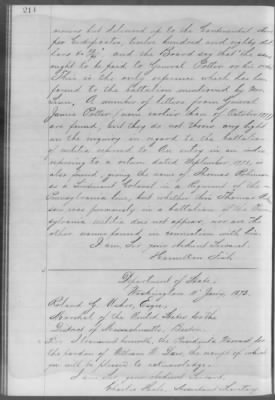 214
money but delivered up to the Continental
per Certificates, twelve hundred and eighty
and the Board say that the
ought to be paid to General Potter as his own
This is the only reference which has been
found to the battalion mentioned by
A number of letters from General
James Potter, none earlier than of October 1777
are found, but they do not throw any light
on the inquiry in regard to the battalion
of militia referred to. An entry in an index
referring to a return dated September, 1775, is
also found, giving the name of Thomas Robinson
as a Lieutenant Colonel in a Regiment of the
Pennsylvania line, but whether this Thomas
was previously in a battalion of the
sylvania militia does not appear, nor are the
other names found, in connection with him.
I am, Sir, your obedient Servant.
Hamilton Fish
Department of State,
Washington Jan'y, 1873.
Roland G. Usher, Esqr.,
Marshal of the United States for the
District of Massachusetts, Boston.
Sir: I transmit herewith, the President's Warrant for
the pardon of William W. the receipt of which
you will be pleased to acknowledge.
I am, Sir, your obedient Servant,
Charles Hale, Assistant Secretary